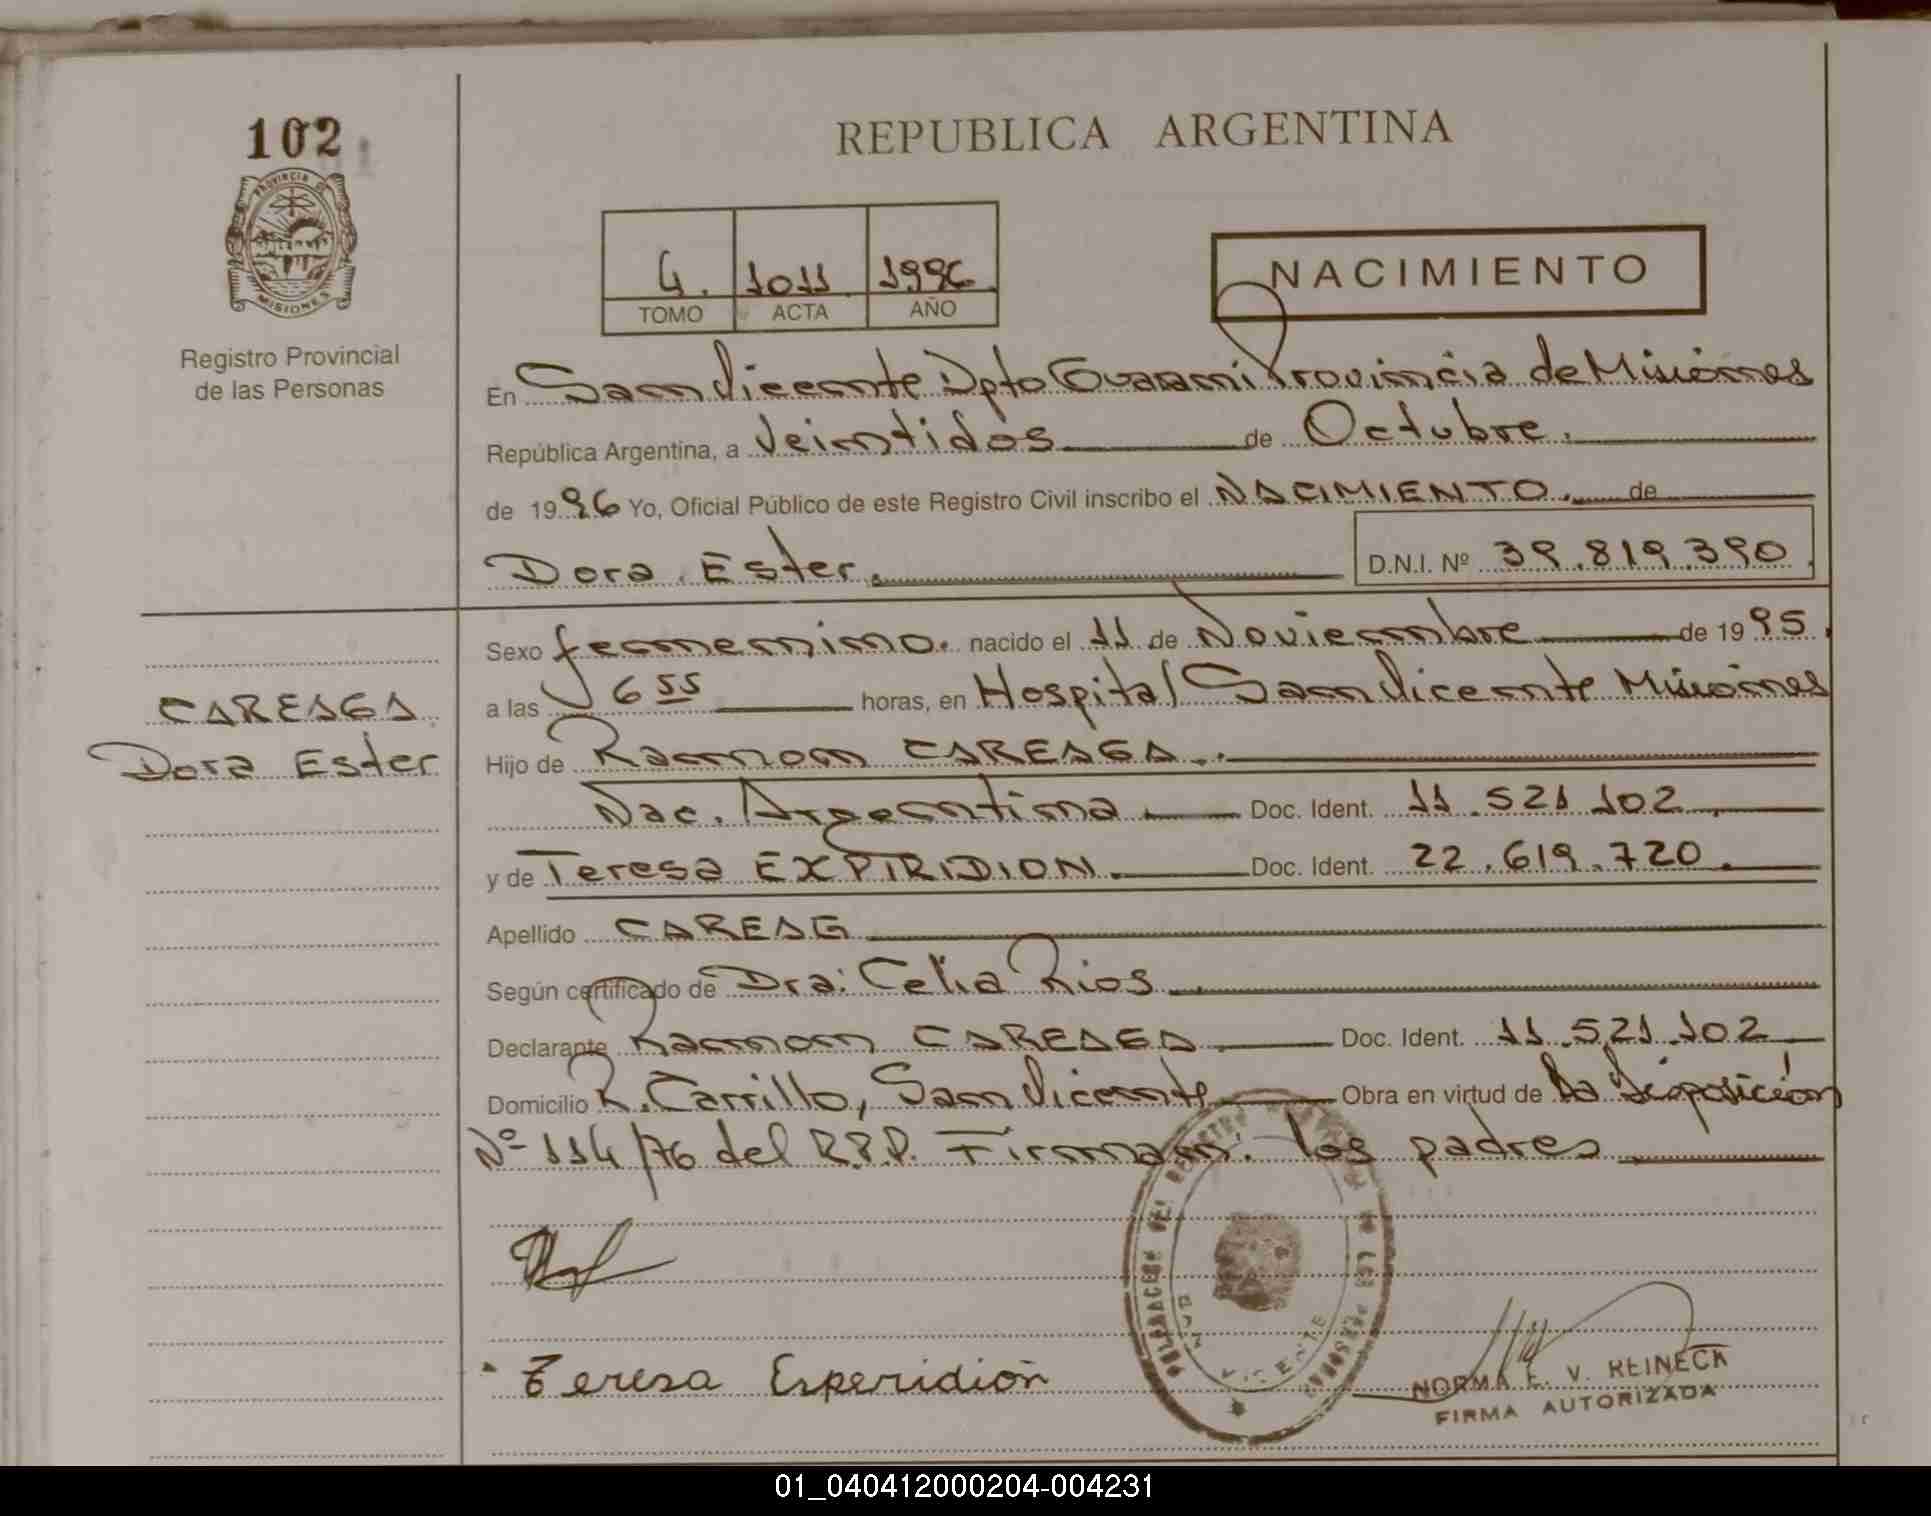 102
REPUBLICA ARGENTINA
PROVINCIA DE
MISIONES
Registro Provincial
de las Personas
4. 1011 1996
TOMO ACTA AÑO
NACIMIENTO
En San Vicente Dpto Guarani Provincia de Misiones
República Argentina, a Veintidos de Octubre.
de 1996 Yo, Oficial Público de este Registro Civil inscribo el NACIMIENTO. de
Dora Ester. D.N.I. Nº 39.819.390.
Sexo femenino. nacido el 11 de Noviembre de 1995.
a las 6 55 horas, en Hospital San Vicente Misiones
CAREAGA
Dora Ester
Hijo de Ramon CAREAGA.
Nac. Argentina Doc. Ident. 11.521.102.
y de Teresa EXPIRIDION. Doc. Ident. 22.619.720.
Apellido CAREAG
Según certificado de Dra: Celia Rios
Declarante Ramon CAREAGA Doc. Ident. 11.521.102
Domicilio R. Carrillo, San Vicente Obra en virtud de la Disposición
Nº 114/76 del R.P.P. Firman: los padres
Teresa Esperidión
SAN VICENTE
NORMA E. V. REINECK
FIRMA AUTORIZADA
01_040412000204-004231